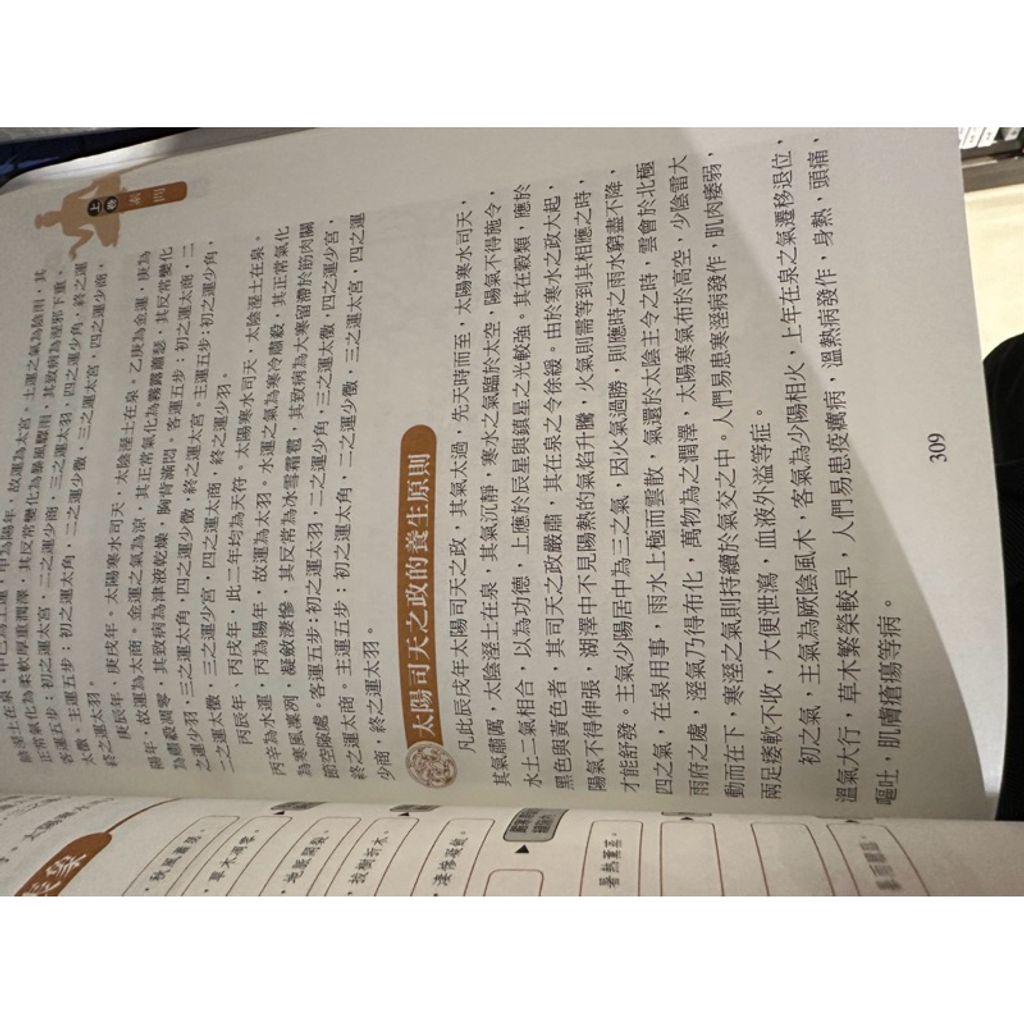 上卷
素問
正常氣化為柔軟厚重潤澤，其反常變化為暴風驟雨，其致病為溼邪下重。
客運五步：初之運太宮，二之運少商，三之運太羽，四之運少角，終之運
太徵。主運五步：初之運太角，二之運少徵，三之運太宮，四之運少商，
終之運太羽。
庚辰年、庚戌年，太陽寒水司天，太陰溼土在泉。乙庚為金運，庚為
陽年，故運為太商。金運之氣為涼，其正常氣化為霧露蕭瑟，其反常變化
為肅殺凋零，其致病為津液乾燥，胸背滿悶。客運五步：初之運太商，二
之運少羽，三之運太角，四之運少徵，終之運太宮。主運五步：初之運少角，
二之運太徵，三之運少宮，四之運太商，終之運少羽。
丙辰年、丙戌年，此二年均為天符。太陽寒水司天，太陰溼土在泉。
丙辛為水運，丙為陽年，故運為太羽。水運之氣為寒冷肅殺，其正常氣化
為寒風凜冽，凝斂淒慘，其反常為冰雪霜雹，其致病為大寒留滯於筋肉關
節空隙處。客運五步：初之運太羽，二之運少角，三之運太徵，四之運少宮，
終之運太商。主運五步：初之運太角，二之運少徵，三之運太宮，四之運
少商，終之運太羽。
太陽司天之政的養生原則
凡此辰戌年太陽司天之政，其氣太過，先天時而至，太陽寒水司天，
其氣肅厲，太陰溼土在泉，其氣沉靜，寒水之氣臨於太空，陽氣不得施令，
水土二氣相合，以為功德，上應於辰星與鎮星之光較強。其在穀類，應於
黑色與黃色者，其司天之政嚴肅，其在泉之令徐緩。由於寒水之政大起，
陽氣不得伸張，湖澤中不見陽熱的氣焰升騰，火氣則需等到其相應之時，
才能舒發。主氣少陽居中為三之氣，因火氣過勝，則應時之雨水窮盡不降，
四之氣，在泉用事，雨水上極而雲散，氣還於太陰主令之時，雲會於北極
雨府之處，溼氣乃得布化，萬物為之潤澤，太陽寒氣布於高空，少陰雷火
動而在下，寒溼之氣則持續於氣交之中。人們易患寒溼病發作，肌肉痿弱，
兩足痿軟不收，大便泄瀉，血液外溢等症。
初之氣，主氣為厥陰風木，客氣為少陽相火，上年在泉之氣遷移退位，
溫氣大行，草木繁榮較早，人們易患疫癘病，溫熱病發作，身熱，頭痛，
嘔吐，肌膚瘡瘍等病。
309
秋風蕭瑟。
草木凋零。
地脈開裂。
拔樹折木。
淒慘凝斂。
暑熱薰蒸。